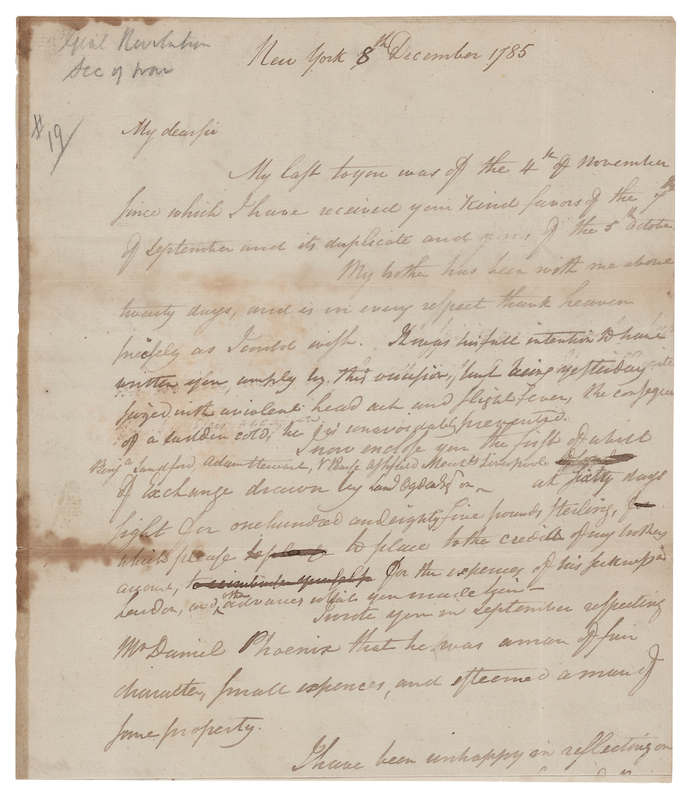 Genl Revolution
Sec of War
#19
New York 8th December 1785
My dear sir
My last to you was of the 4th of November
since which I have received your kind favors of the 7th
of September and its duplicate and yours of the 5th October
My brother has been with me above
twenty days, and is in every respect thank heaven
precisely as I could wish. It was his full intention to have
written you, amply by this occasion, but being yesterday
seized with a violent head ach and slight fever, the consequen
of a sudden cold, he is unavoidably prevented.
I now enclose you the first of a bill
Benj Sandford, Adam Stewart, &
of exchange drawn by on at sixty days
sight for one hundred and eighty five pounds sterling,
which please to place to the credit of my brothers
account, for the expences of his sickness in
London, and other advances which you made him—
I wrote you in September respecting
Mr Daniel Phoenix that he was a man of fair
character, small expences, and esteemed a man of
some property.
I have been unhappy in reflecting on